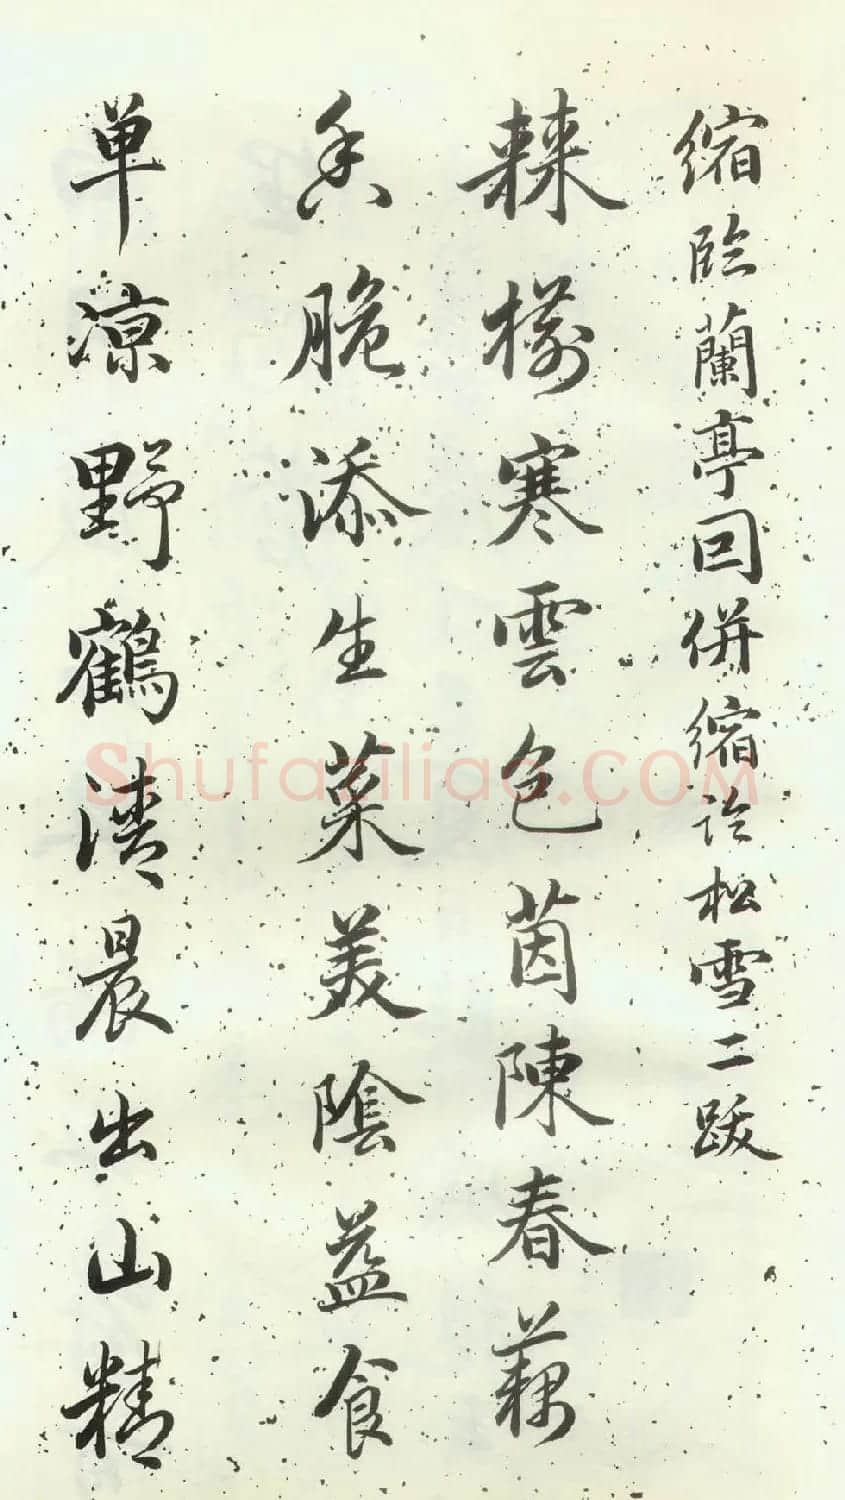 縮臨蘭亭因併縮臨松雪二跋
棘樹寒雲色茵陳春藕
香脆添生菜美陰益食
单涼野鶴清晨出山精
Shufaziliao.COM